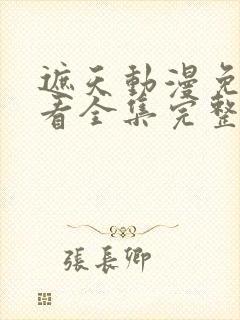 遮天動漫免
看全集完整
張長卿